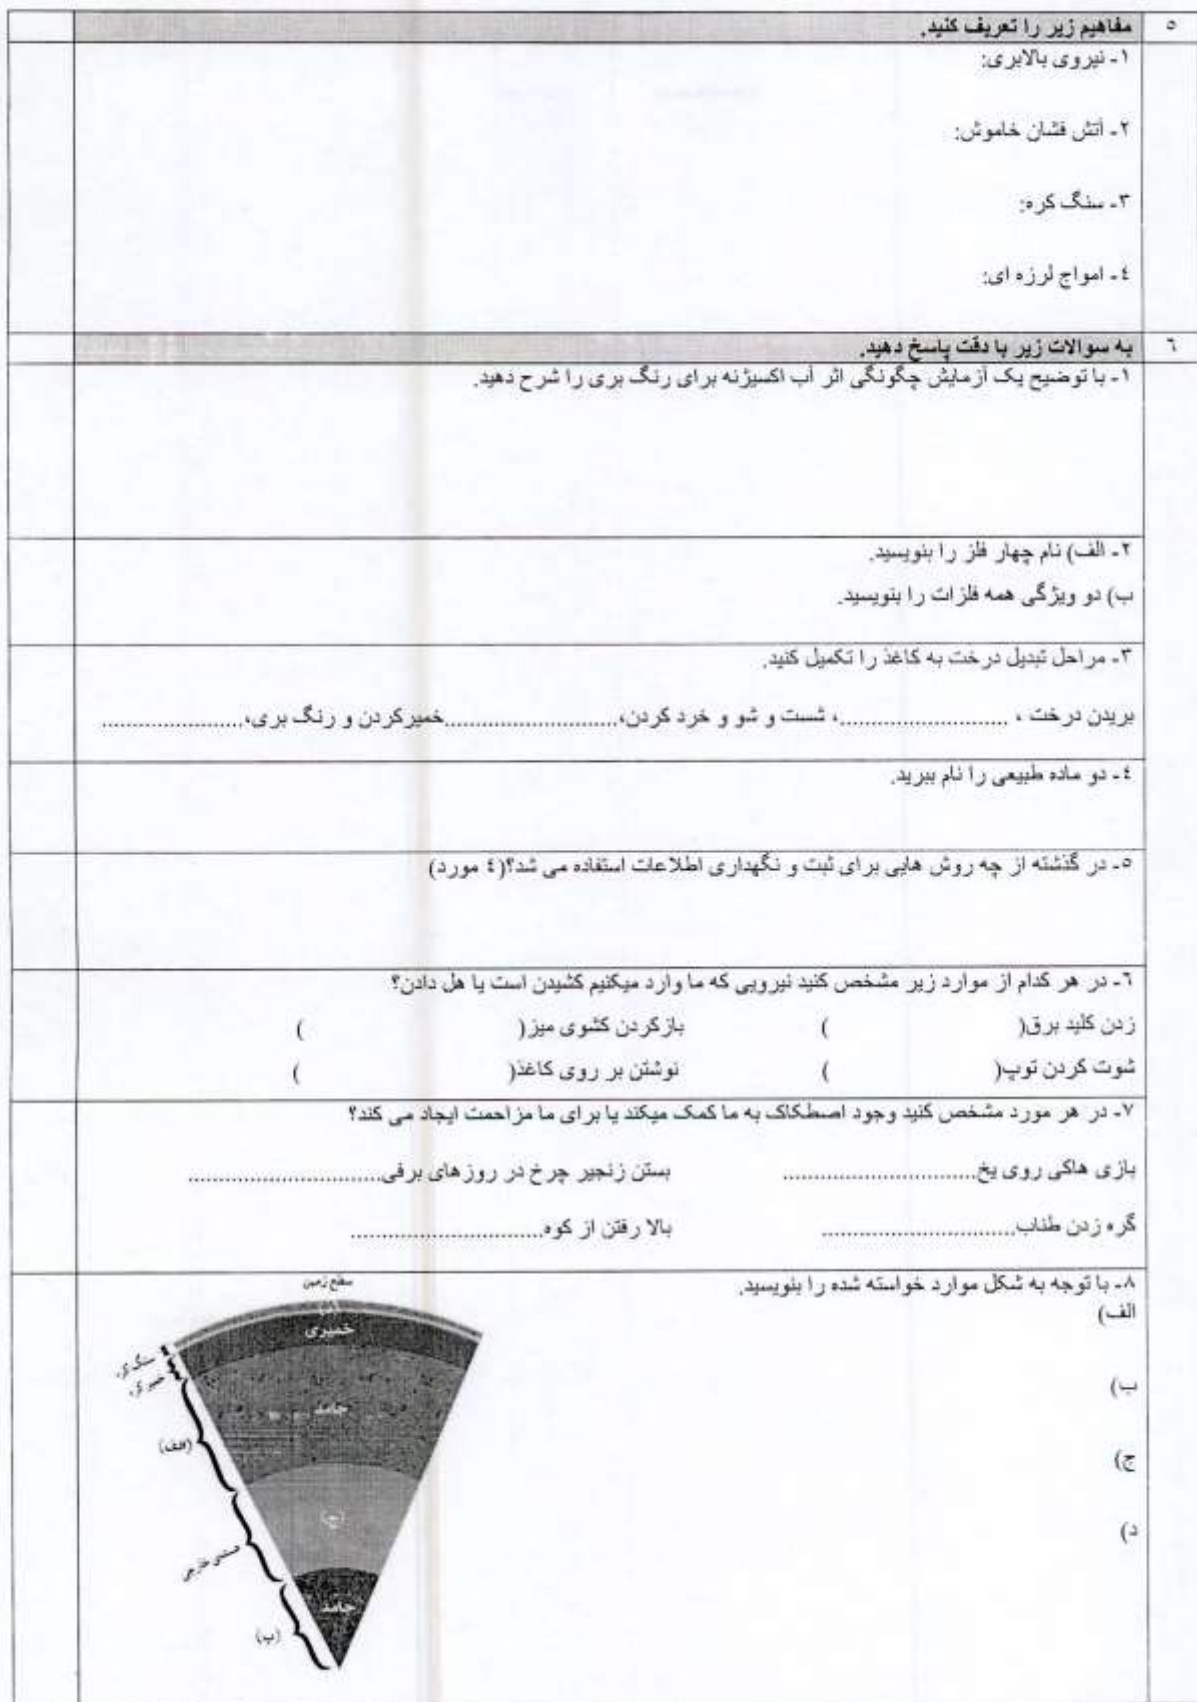 ۵ مفاهیم زیر را تعریف کنید.
۱- نیروی بالابری:
۲- آتش فشان خاموش:
۳- سنگ کره:
٤- امواج لرزه ای:
٦ به سوالات زیر با دقت پاسخ دهید.
۱- با توضیح یک آزمایش چگونگی اثر آب اکسیژنه برای رنگ بری را شرح دهید.
۲- الف) نام چهار فلز را بنویسید.
ب) دو ویژگی همه فلزات را بنویسید.
۳- مراحل تبدیل درخت به کاغذ را تکمیل کنید.
بریدن درخت ، ..........................، شست و شو و خرد کردن،...........................خمیرکردن و رنگ بری،......................
٤- دو ماده طبیعی را نام ببرید.
۵- در گذشته از چه روش هایی برای ثبت و نگهداری اطلاعات استفاده می شد؟(٤ مورد)
٦- در هر کدام از موارد زیر مشخص کنید نیرویی که ما وارد میکنیم کشیدن است یا هل دادن؟
زدن کلید برق( ) بازکردن کشوی میز( )
شوت کردن توپ( ) نوشتن بر روی کاغذ( )
۷- در هر مورد مشخص کنید وجود اصطکاک به ما کمک میکند یا برای ما مزاحمت ایجاد می کند؟
بازی هاکی روی یخ.............................. بستن زنجیر چرخ در روزهای برفی..............................
گره زدن طناب.............................. بالا رفتن از کوه..............................
۸- با توجه به شکل موارد خواسته شده را بنویسید.
الف)
ب)
ج)
د)
سطح زمین
(د)
خمیری
سنگ کره
خمیر کره
جامد
(الف)
(ج)
هسته‌ی خارجی
جامد
(ب)